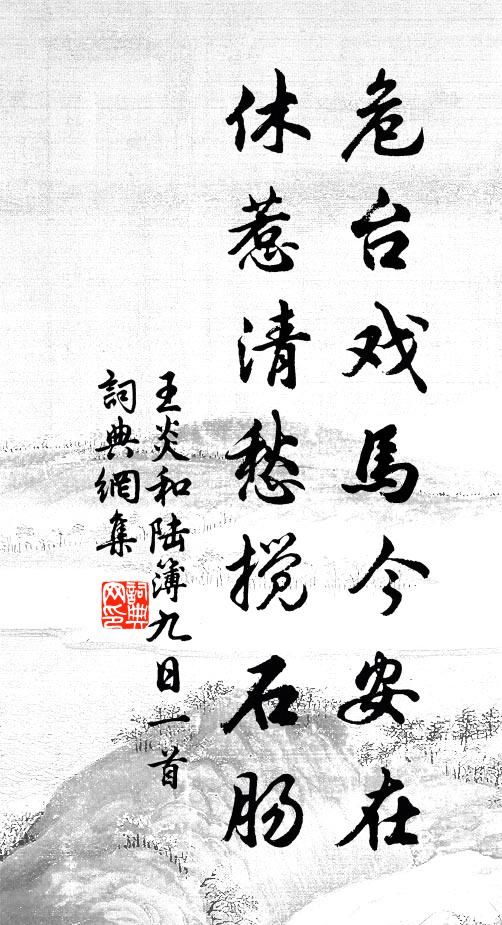 危台戏馬今安在
休惹清愁搅石肠
王炎和陆簿九日一首
詞典網集
詞典網印